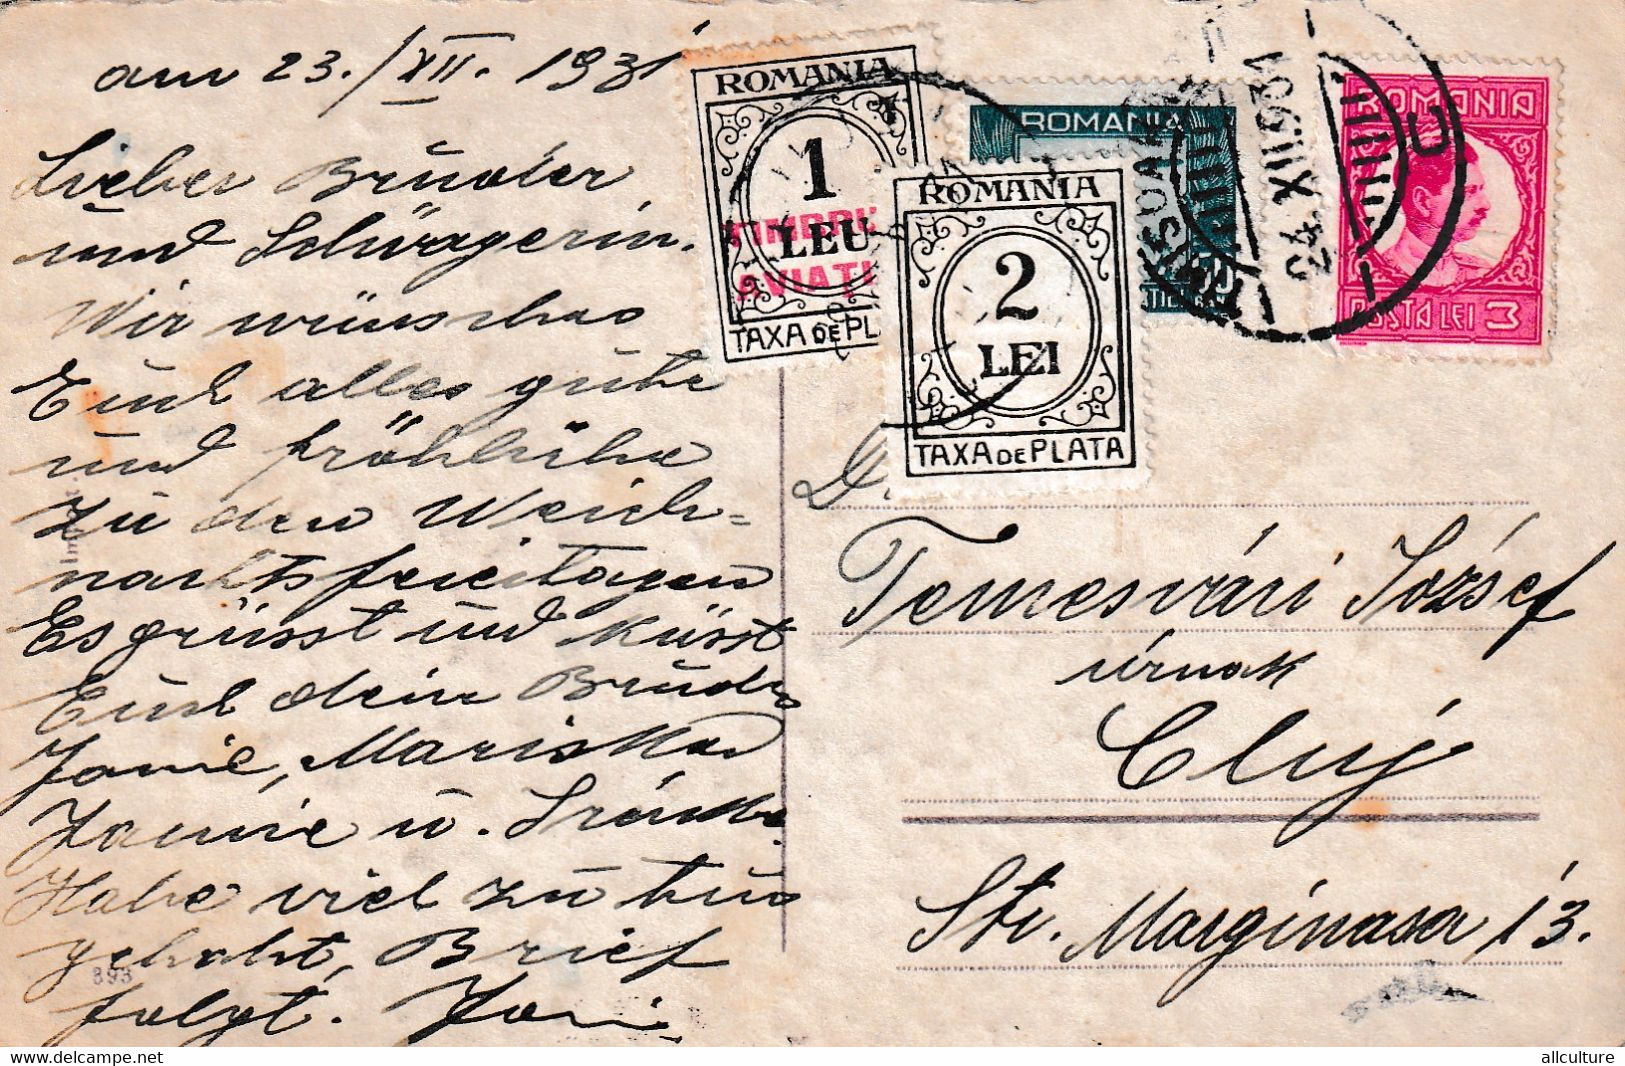 am 23./XII. 1931
Lieber Brüder
und Schwägerin.
Wir wünschen
Euch alles gute
und fröhliche
zu den Weich-
nachtsfeietagen
Es grüsst und küsst
Euch dein Brüder
Janie, Mariska
u.
Habe viel zu tun
gehabt, Brief
folgt. Jani
893
ROMANIA
1
LEU
TIMBRU
AVIAȚI
TAXA DE PL
ROMANIA
2
LEI
TAXA DE PLATA
ROMANIA
24. XII. 931
ROMONIA
POSTA LEI 3
D.
Temesvári József
úrnak
Cluj
Str. Marginasa 13.
delcampe.net
allculture